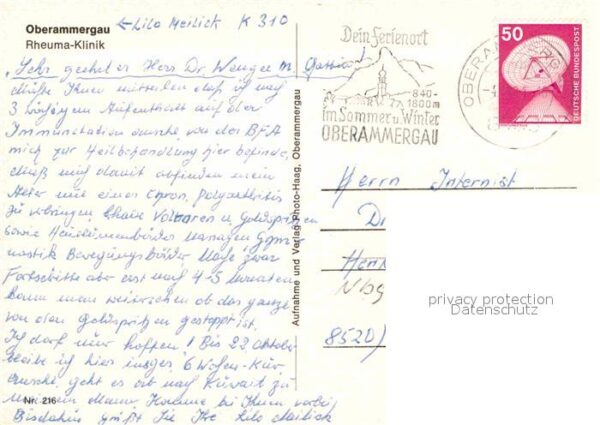 Oberammergau
Rheuma-Klinik
← Lilo Meilick K 310
Sehr geehrter Herr Dr. Wenger m. Gattin!
Ihnen mitteilen daß ich nach
3 Aufenthalt auf der
Immunstation von der BfA
mich zur Heilbehandlung hier befinde,
muß mich damit abfinden mein
mit einer chron. Polyarthritis
zu verbringen, Voltaren u. Goldspritzen
sowie Heublumenbäder Massagen Gym
nastik Bewegungsbäder zwar
Fortschritte aber erst nach 4-5 Monaten
kann man ob das ganze
von den Goldspritzen gestoppt ist.
Ich darf nur hoffen! Bis 22. Oktober
bleibe ich hier insges. 6 Wochen-Kur,
geht es nach Kuwait zu
meinem Mann. Komme bei Ihnen vorbei
Bisdahin grüßt Sie Ihre Lilo Meilick
Nr. 216
Aufnahme und Verlag Photo-Haag, Oberammergau
Dein Ferienort
840-
1800m
im Sommer u. Winter
OBERAMMERGAU
OBERAMMERGAU
50
DEUTSCHE BUNDESPOST
Herrn Internist
Dr
8520
privacy protection
Datenschutz